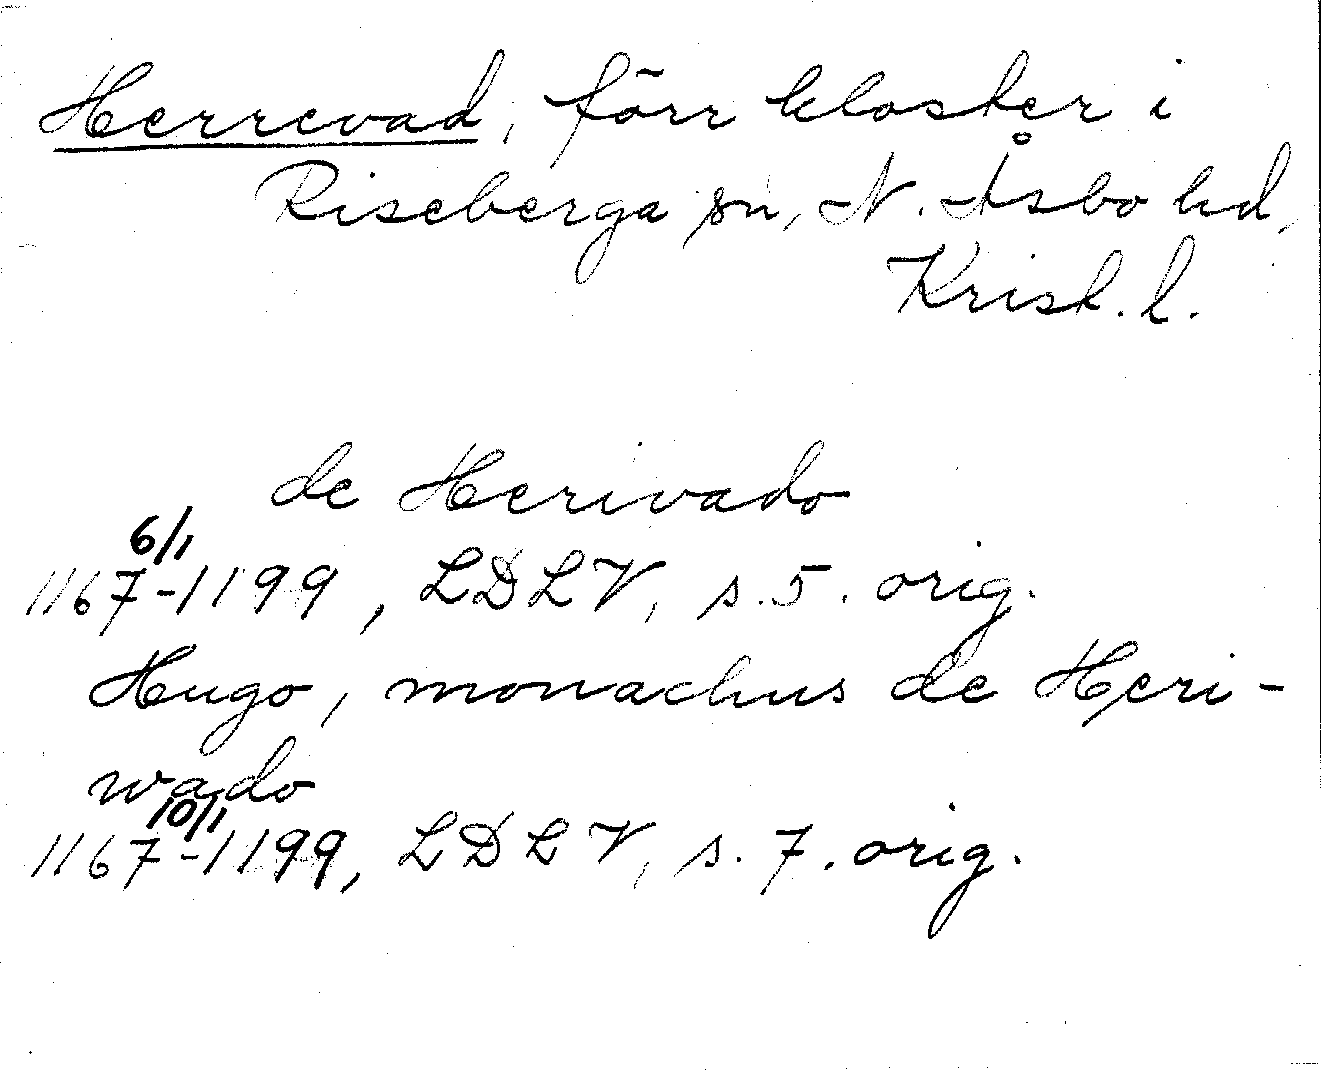 Herrevad, förr kloster i
Riseberga sn, N. Åsbo hd,
Krist. l.
de Herivado
6/1
1167-1199, LDLV, s. 5. orig.
Hugo, monachus de Heri-
wado
10/1
1167-1199, LDLV, s. 7. orig.